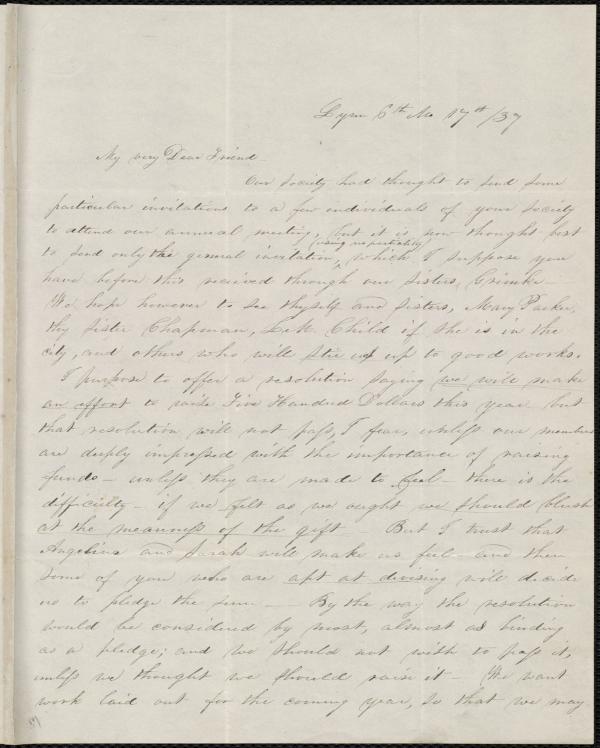 Lynn 6th Mo 17th/37
My very Dear Friend
Our society had thought to send some
particular invitations to a few individuals of your society
to attend our annual meeting, but it is now thought best
to send only the general invitation, which I suppose you
have before this received through our sisters, Grimke—
We hope however to see thyself and sisters, Mary Parker,
thy sister Chapman, L. M. Child if she is in the
city, and others who will stir us up to good works.
I purpose to offer a resolution saying we will make
an effort to raise Five Hundred Dollars this year but
that resolution will not pass, I fear, unless our members
are deeply impressed with the importance of raising
funds— unless they are made to feel— there is the
difficulty— if we felt as we ought we should blush
at the meanness of the gift— But I trust that
Angelina and Sarah will make us feel— and then
some of you who are apt at devising will decide
us to pledge the sum.— — By the way the resolution
would be considered by most, almost as binding
as a pledge; and we should not wish to pass it,
unless we thought we should raise it— We want
work laid out for the coming year, so that we may